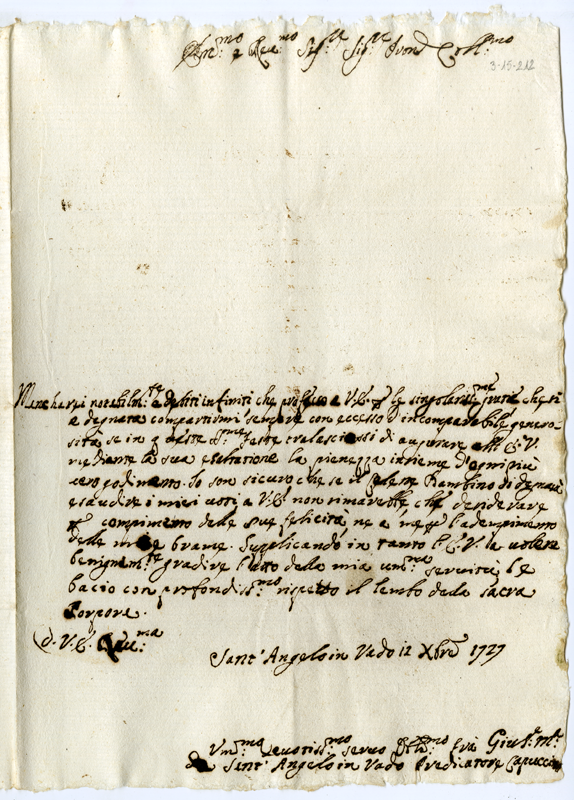 Em:mo e Reu:mo Sig:re Sig:re Pron Coll:mo
3-15-212
Mancharei notabilm:te a debiti infiniti che professo a V.E. p le singolarissme gratie che si
è degnata compartirmi sempre con eccesso d'incomparabile genero-
sità se in q este S:me feste tralasciassi di augurare all E. V.
mediante la sua esaltatione la pienezza insieme d'ogni più
vero godimento. Io son sicuro che se il Celeste Bambino si degnarà
esaudire i miei voti a V.E. non rimarebbe che desiderare
p compimento delle sue felicità, ne a me p l'adempimento
delle mie brame. Supplicando in tanto l'E.V. la volere
benignam:te gradire l'atto della mia um:ma servitù le
bacio con profondiss:mo rispetto il lembo della sacra
Porpora.
d. V. E. Reu:ma
Sant' Angelo in Vado 12 Xbre 1727
Um:mo Deuotiss:mo seruo Obb:mo Frà Gius:e M:a
da Sant' Angelo in Vado Predicatore Capuccino